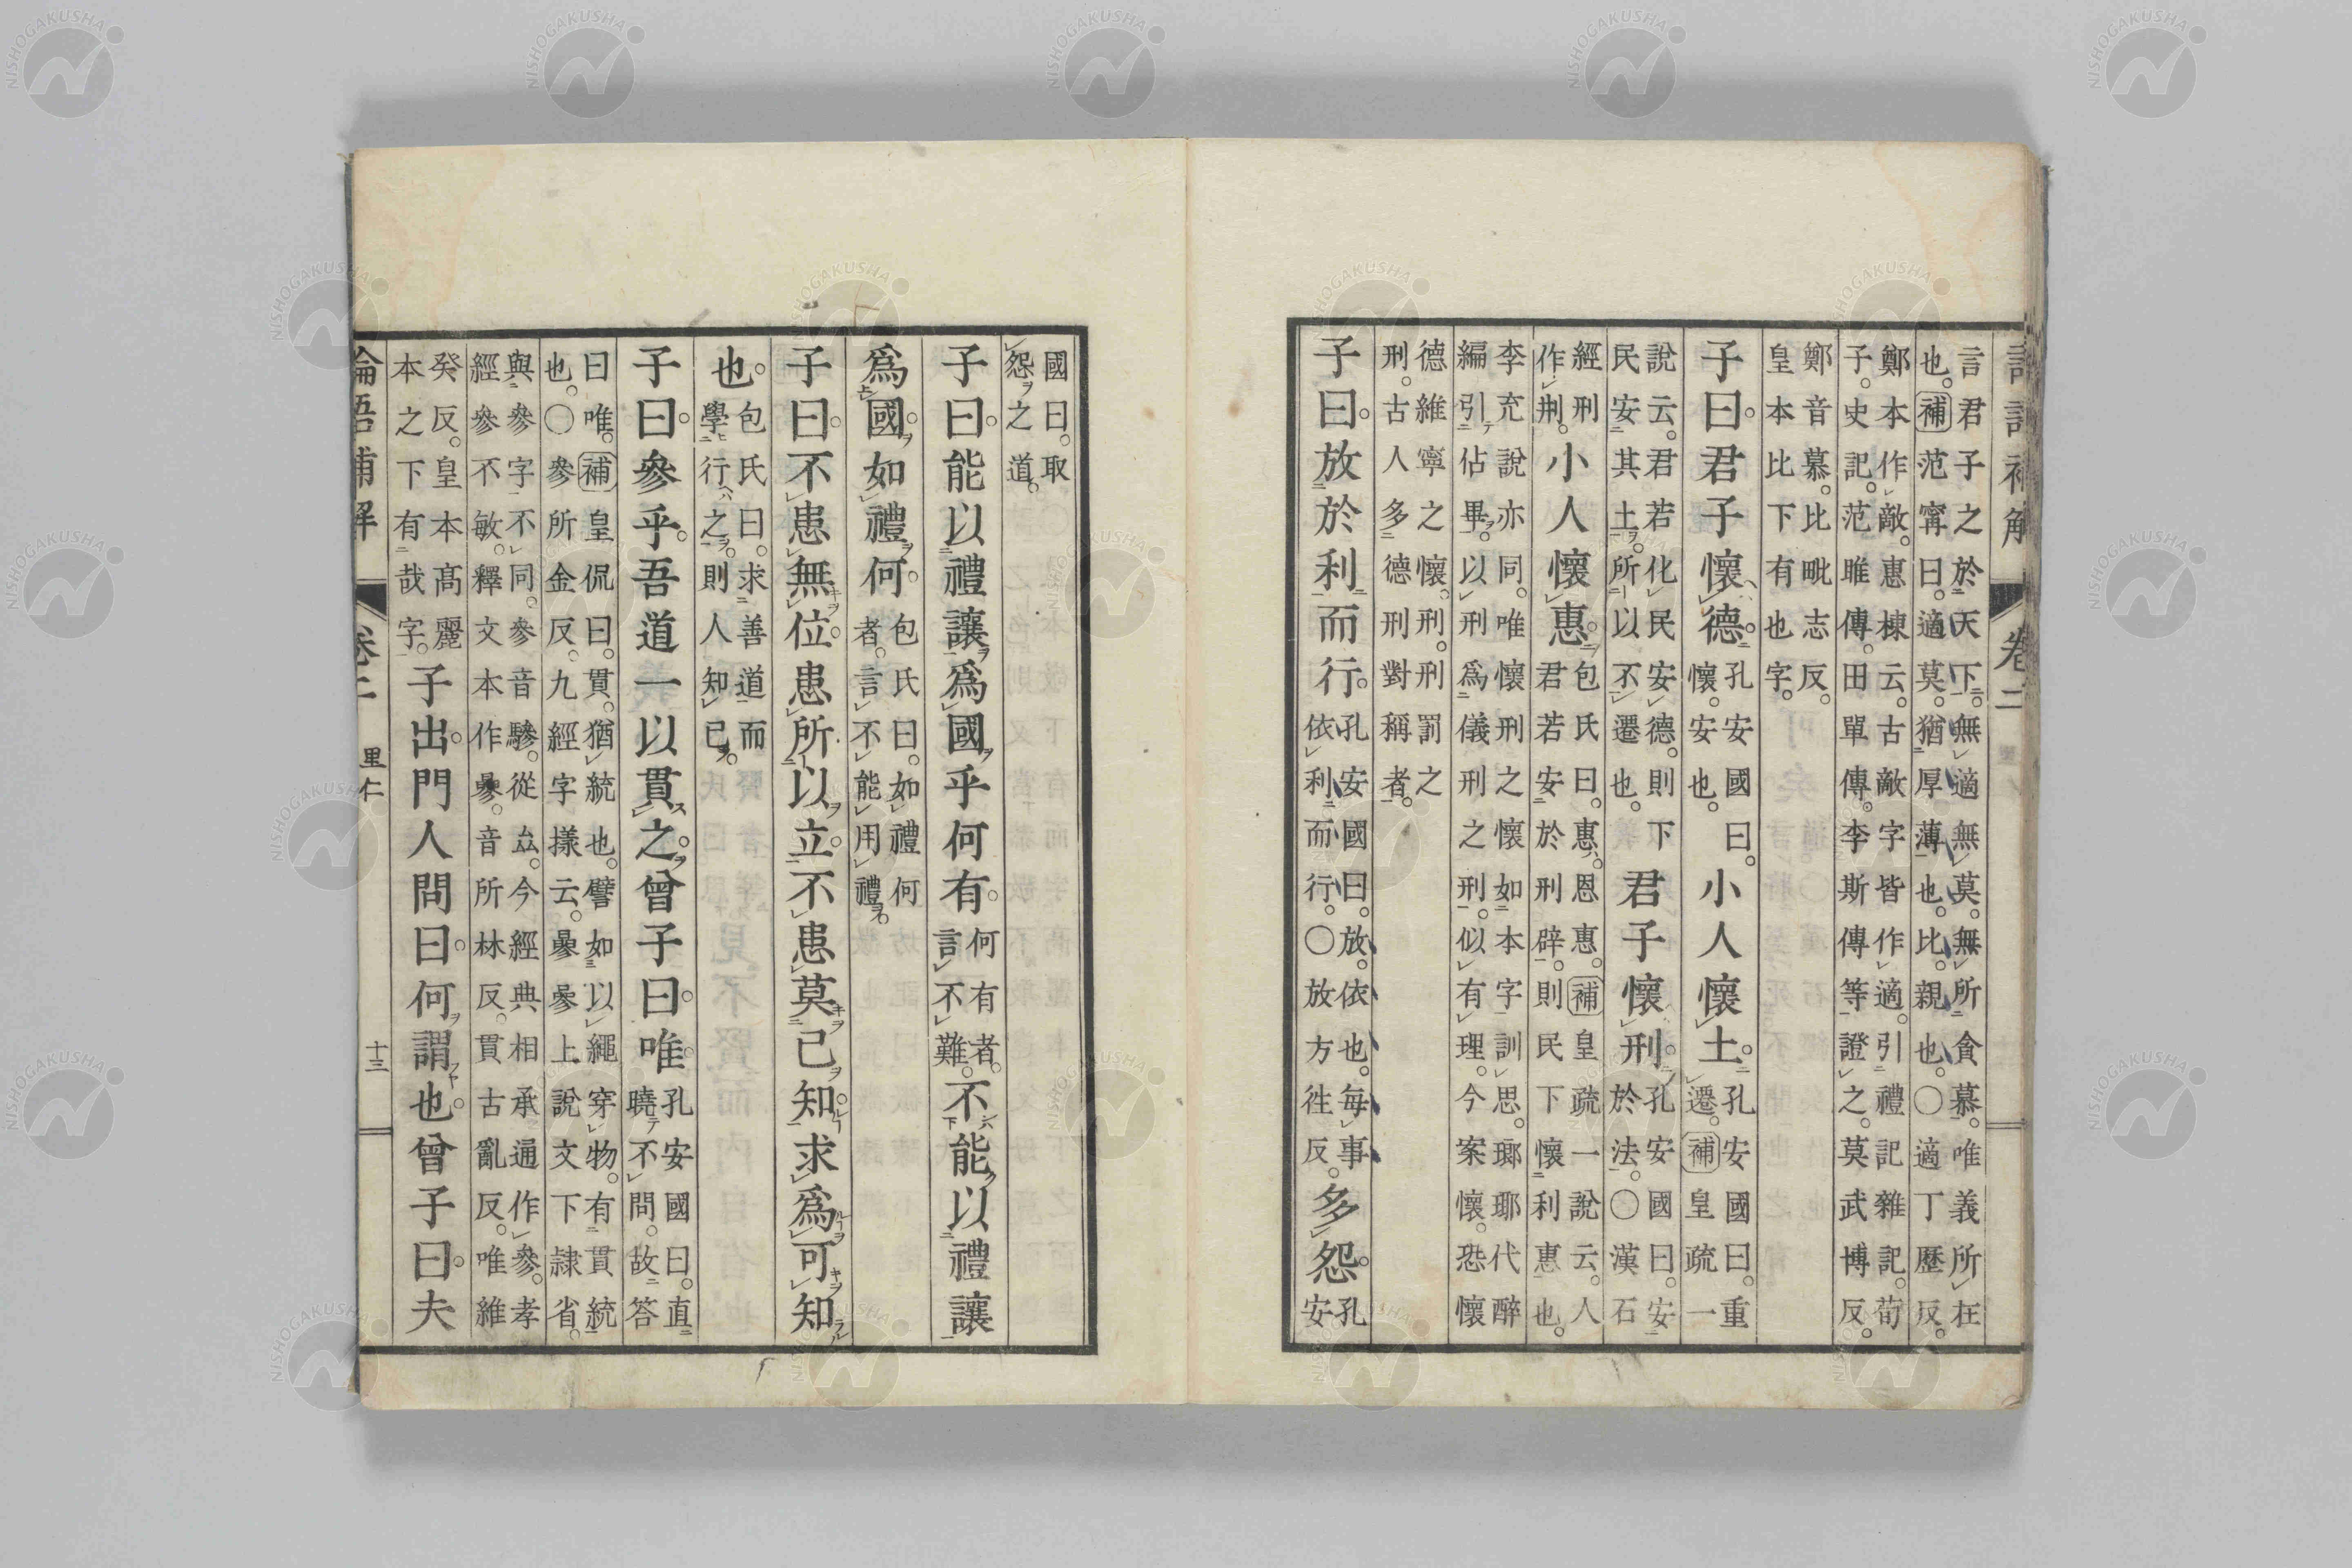 言君子之於天下。無適無莫。無所貪慕。唯義所在
也。補范甯曰。適莫。猶厚薄也。比。親也。〇適丁歷反。
鄭本作敵。惠棟云。古敵字皆作適。引禮記雜記。荀
子。史記。范雎傳。田單傳。李斯傳等證之。莫武博反。
鄭音慕。比毗志反。
皇本比下有也字。
子曰。君子懷德。孔安國曰。
懷。安也。小人懷土。孔安國曰。重
遷。補皇疏一
說云。君若化民安德。則下
民安其土。所以不遷也。君子懷刑。孔安國曰。安
於法。〇漢石
經刑
作荆。小人懷惠。包氏曰。惠。恩惠。補皇疏一說云。人
君若安於刑辟。則民下懷利惠也。
李充說亦同。唯懷刑之懷如本字訓思。瑯耶代醉
編引佔畢。以刑爲儀刑之刑。似有理。今案懷。恐懷
德維寧之懷。刑。刑罰之
刑。古人多德刑對稱者。
子曰。放於利而行。孔安國曰。放。依也。每事
依利而行。〇放方往反。多怨。孔
安
國曰。取
怨之道。
子曰。能以禮讓爲國乎何有。何有者。
言不難。不能以禮讓
爲國。如禮何。包氏曰。如禮何
者。言不能用禮。
子曰。不患無位。患所以立。不患莫己知。求爲可知
也。包氏曰。求善道而
學行之。則人知已。
子曰。參乎。吾道一以貫之。曾子曰。唯。孔安國曰。直
曉不問。故答
曰唯。補皇侃曰。貫。猶統也。譬如以繩穿物。有貫統
也。〇參所金反。九經字㨾云。曑參上說文下隷省。
與參字不同。參音驂。從厽。今經典相承通作參。孝
經參不敏。釋文本作曑。音所林反。貫古亂反。唯維
癸反。皇本高麗
本之下有哉字。子出。門人問曰。何謂也。曾子曰。夫
卷二
里仁
十三